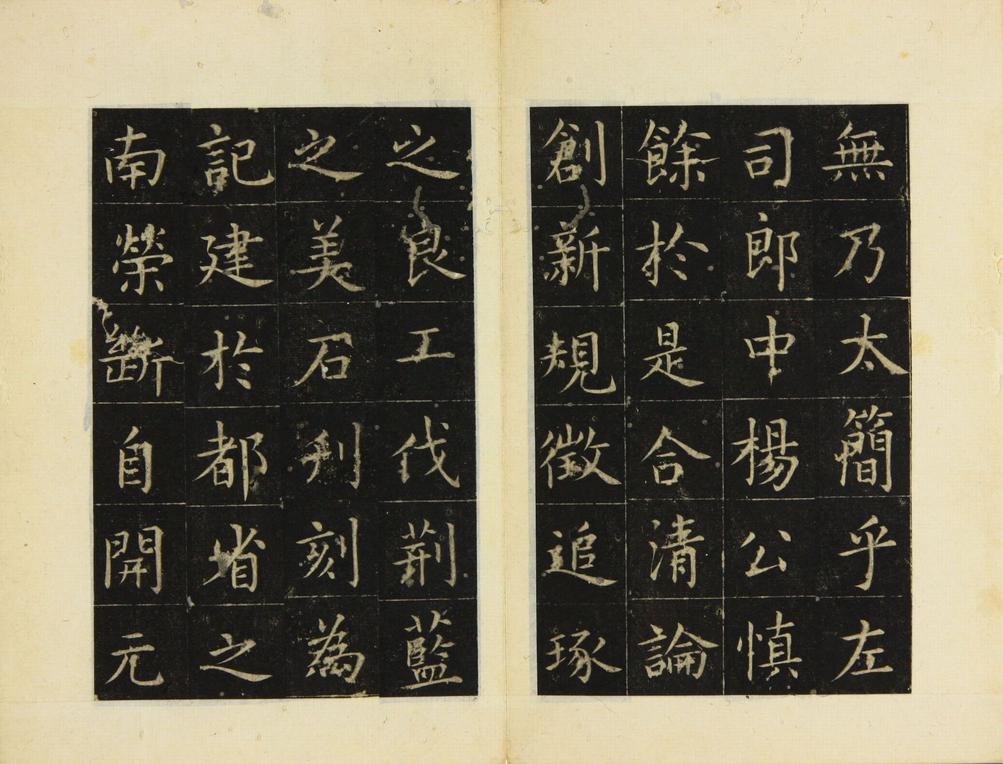 無乃太簡乎左
司郎中楊公慎
餘於是合清論
創新規徵追琢
之良工伐荊藍
之美石刋刻為
記建於都省之
南榮斷自開元